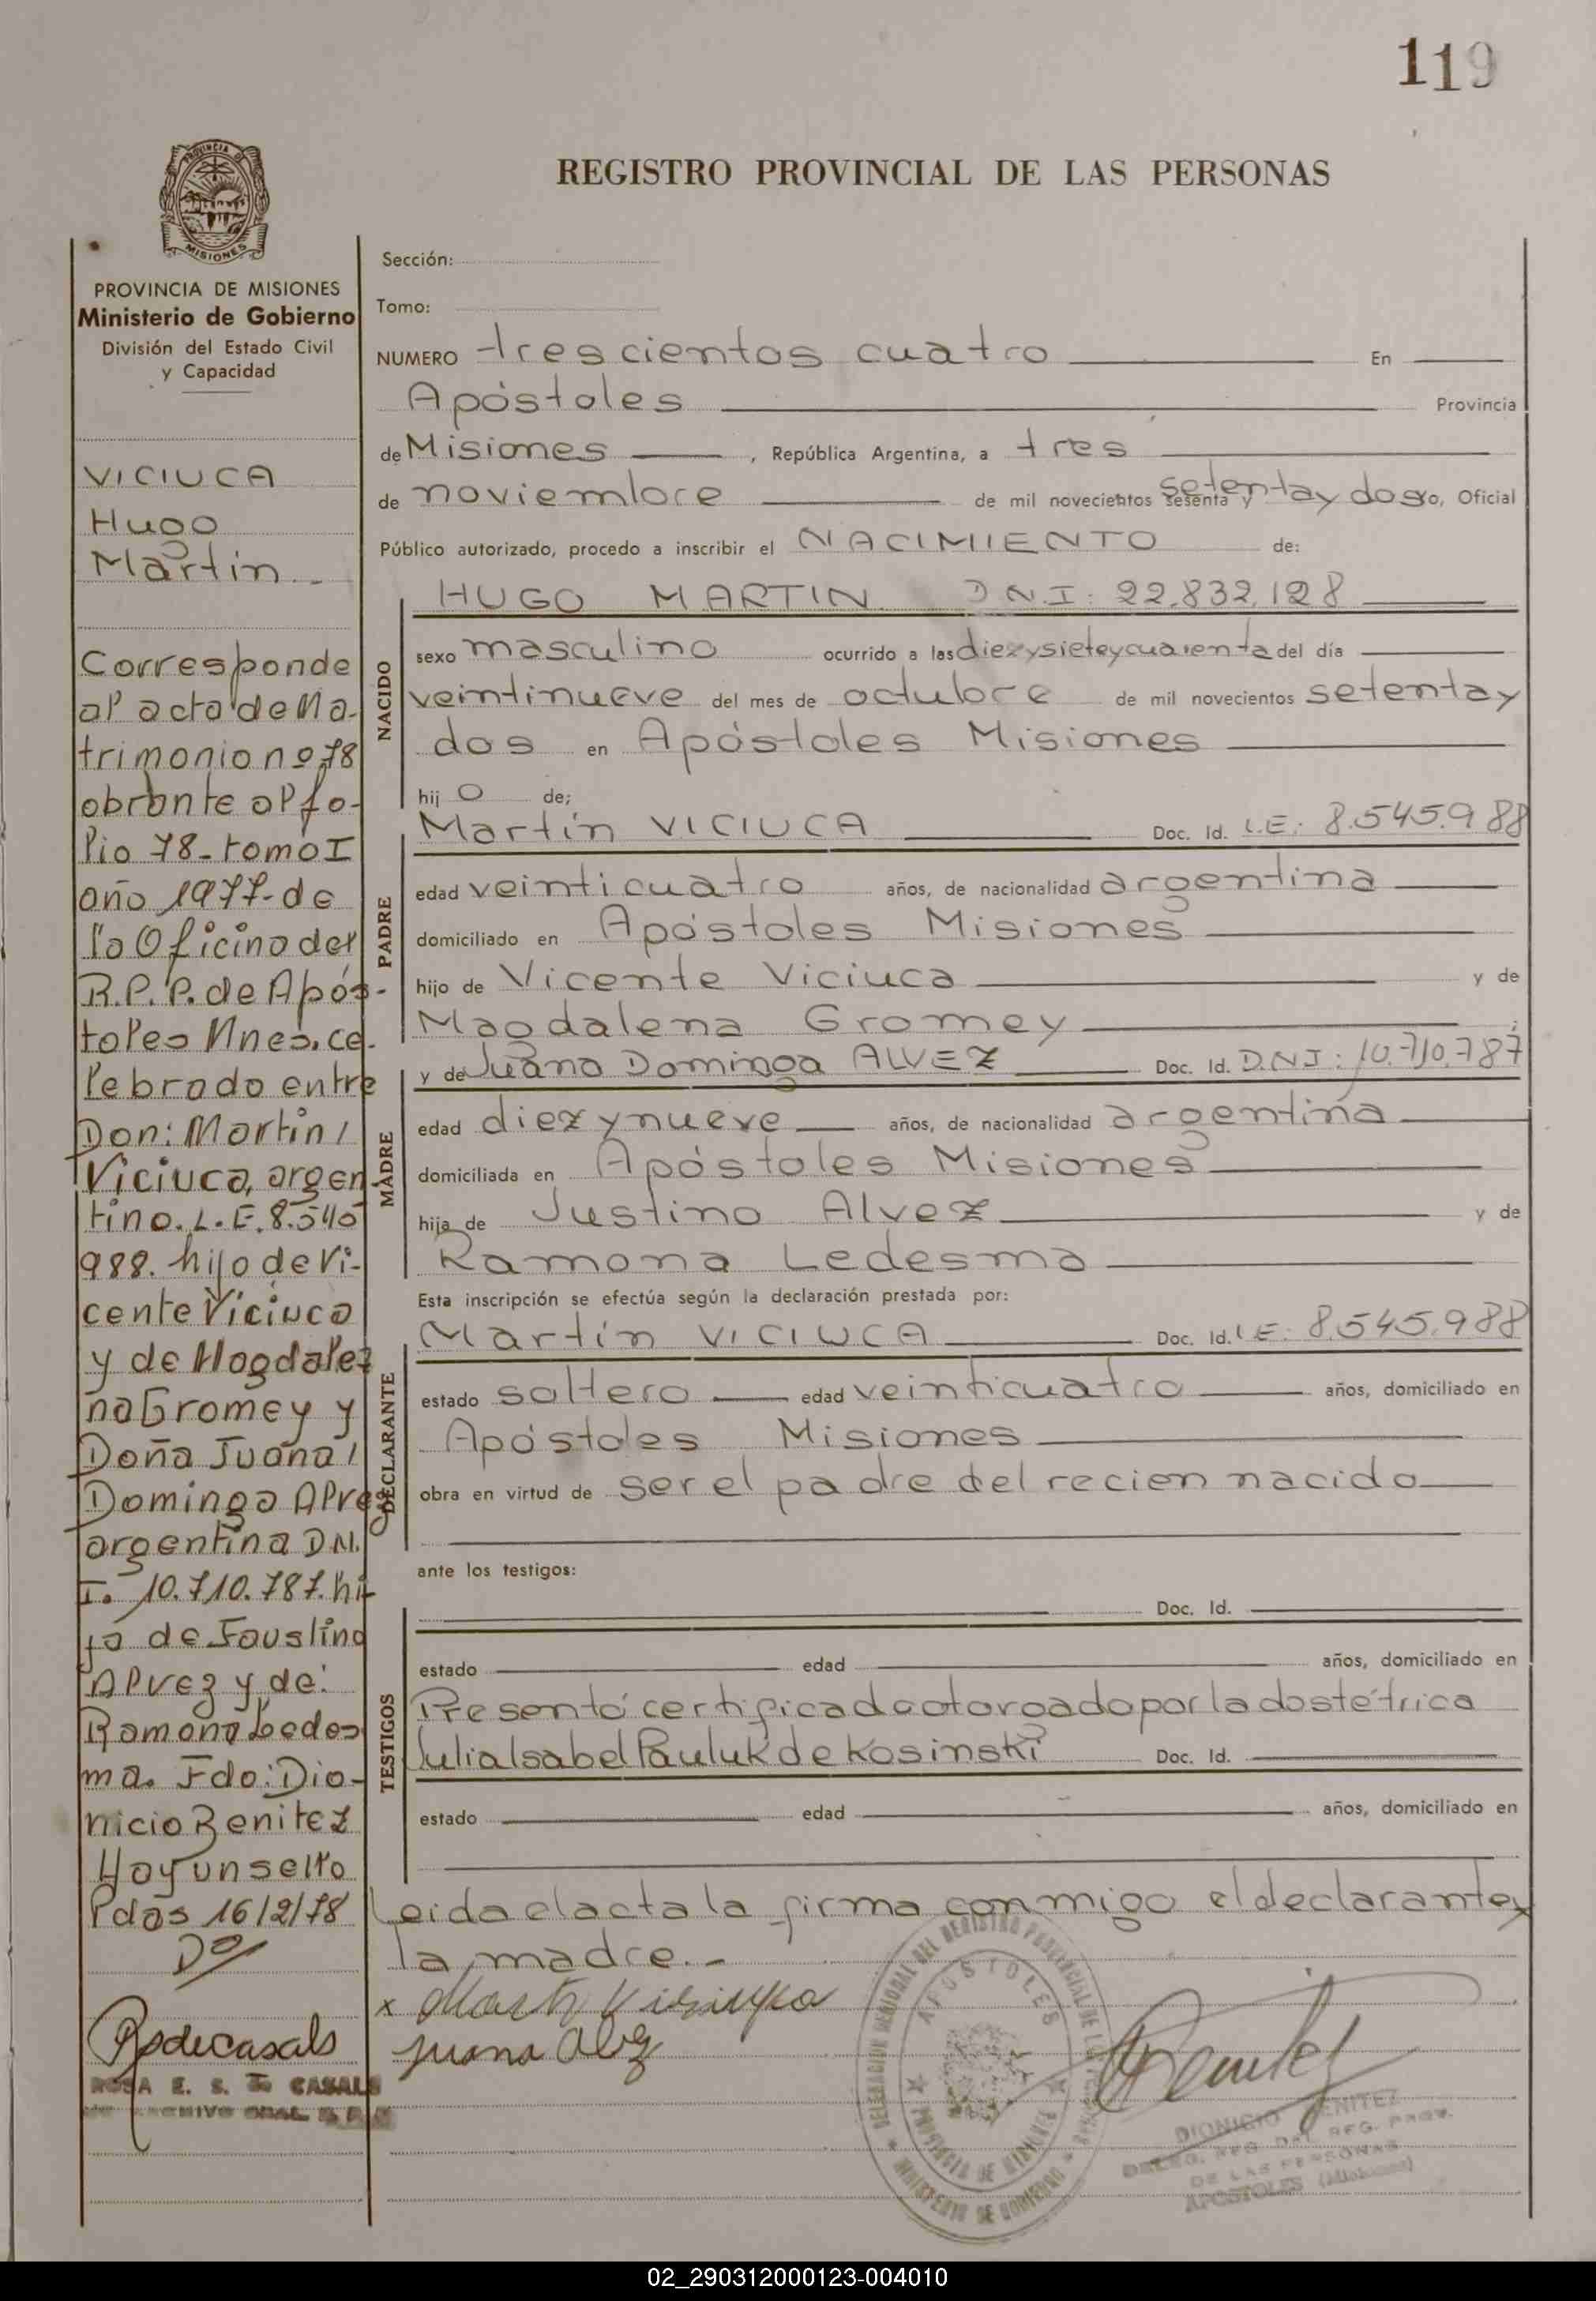 119
PROVINCIA DE
MISIONES
REGISTRO PROVINCIAL DE LAS PERSONAS
PROVINCIA DE MISIONES
Ministerio de Gobierno
División del Estado Civil
y Capacidad
VICIUCA
Hugo
Martín
Corresponde
al acta de Ma-
trimonio nº 78
obrante al fo-
lio 78- tomo I
año 1977- de
la Oficina del
R.P.P. de Após-
toles Mnes. ce-
lebrado entre
Don: Martín
Viciuca, argen
tino. L.E. 8.545
988. hijo de Vi-
cente Viciuca
y de Magdale-
na Gromey y
Doña Juana
Dominga Alvez
argentina D.N.
I. 10.710.787. hi-
ja de Faustino
Alvez y de:
Ramona Ledes
ma. Fdo: Dio-
nicio Benitez
Hay un sello
Pdas 16/2/78
Rsdecasals
ROSA E. S. DE CASALS
Sección:
Tomo:
NUMERO trescientos cuatro En
Apóstoles Provincia
de Misiones , República Argentina, a tres
de noviembre de mil novecientos sesenta y setenta y dos yo, Oficial
Público autorizado, procedo a inscribir el NACIMIENTO de:
NACIDO
HUGO MARTIN D.N.I: 22.832.128
sexo masculino ocurrido a las diez y siete y cuarenta del día
veintinueve del mes de octubre de mil novecientos setenta y
dos en Apóstoles Misiones
hij o de;
PADRE
Martín VICIUCA Doc. Id. L.E: 8.545.988
edad veinticuatro años, de nacionalidad argentina
domiciliado en Apóstoles Misiones
hijo de Vicente Viciuca y de
Magdalena Gromey ;
MADRE
y de Juana Dominga ALVEZ Doc. Id. D.N.I: 10.710.787
edad diez y nueve años, de nacionalidad argentina
domiciliada en Apóstoles Misiones
hija de Justino Alvez y de
Ramona Ledesma
Esta inscripción se efectúa según la declaración prestada por:
DECLARANTE
Martín VICIUCA Doc. Id. L.E: 8.545.988
estado soltero edad veinticuatro años, domiciliado en
Apóstoles Misiones
obra en virtud de ser el padre del recien nacido
ante los testigos:
TESTIGOS
Doc. Id.
estado edad años, domiciliado en
Presentó certificado otorgado por la obstétrica
Julia Isabel Pauluk de Kosinski Doc. Id.
estado edad años, domiciliado en
Leida el acta la firma conmigo el declarante y
la madre.-
x Martín Viciuca
Juana Alvez
DELEGACION REGIONAL DEL REGISTRO PROVINCIAL DE LAS PERSONAS
APOSTOLES
PROVINCIA DE MISIONES
MINISTERIO DE GOBIERNO
Benitez
DIONICIO BENITEZ
DELEG. REG. DEL REG. PROV.
DE LAS PERSONAS
APOSTOLES (Misiones)
02_290312000123-004010